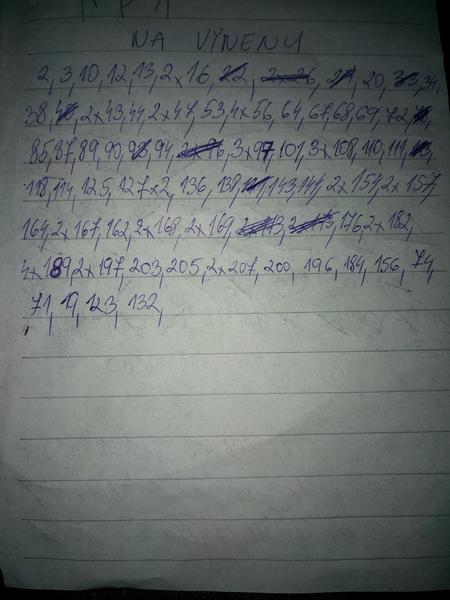 NA VÝMENU
2, 3, 10, 12, 13, 2x16, 20, 34,
38, 2x43, 44, 2x47, 53, 4x56, 64, 67, 68, 69, 72,
85, 87, 89, 90, 94, 3x97, 101, 3x108, 110, 111,
118, 114, 125, 127x2, 136, 138, 143, 144, 2x154, 2x157,
164, 2x167, 162, 2x168, 2x169, 176, 2x182,
4x189, 2x197, 203, 205, 2x207, 200, 196, 184, 156, 74,
71, 19, 123, 132,